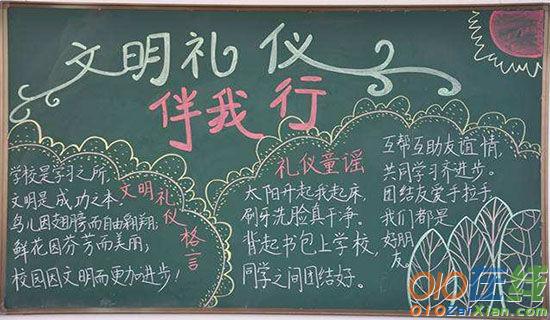 文明礼仪
伴我行
学校是学习之所,
文明是成功之本,
鸟儿因翅膀而自由翱翔;
鲜花因芬芳而美丽;
校园因文明而更加进步!
文明礼仪
格言
礼仪童谣
太阳升起我起床,
刷牙洗脸真干净。
背起书包上学校,
同学之间团结好。
互帮互助友谊情,
共同学习齐进步。
团结友爱手拉手,
我们都是
好朋友。
010在线
010ZaiXian.com